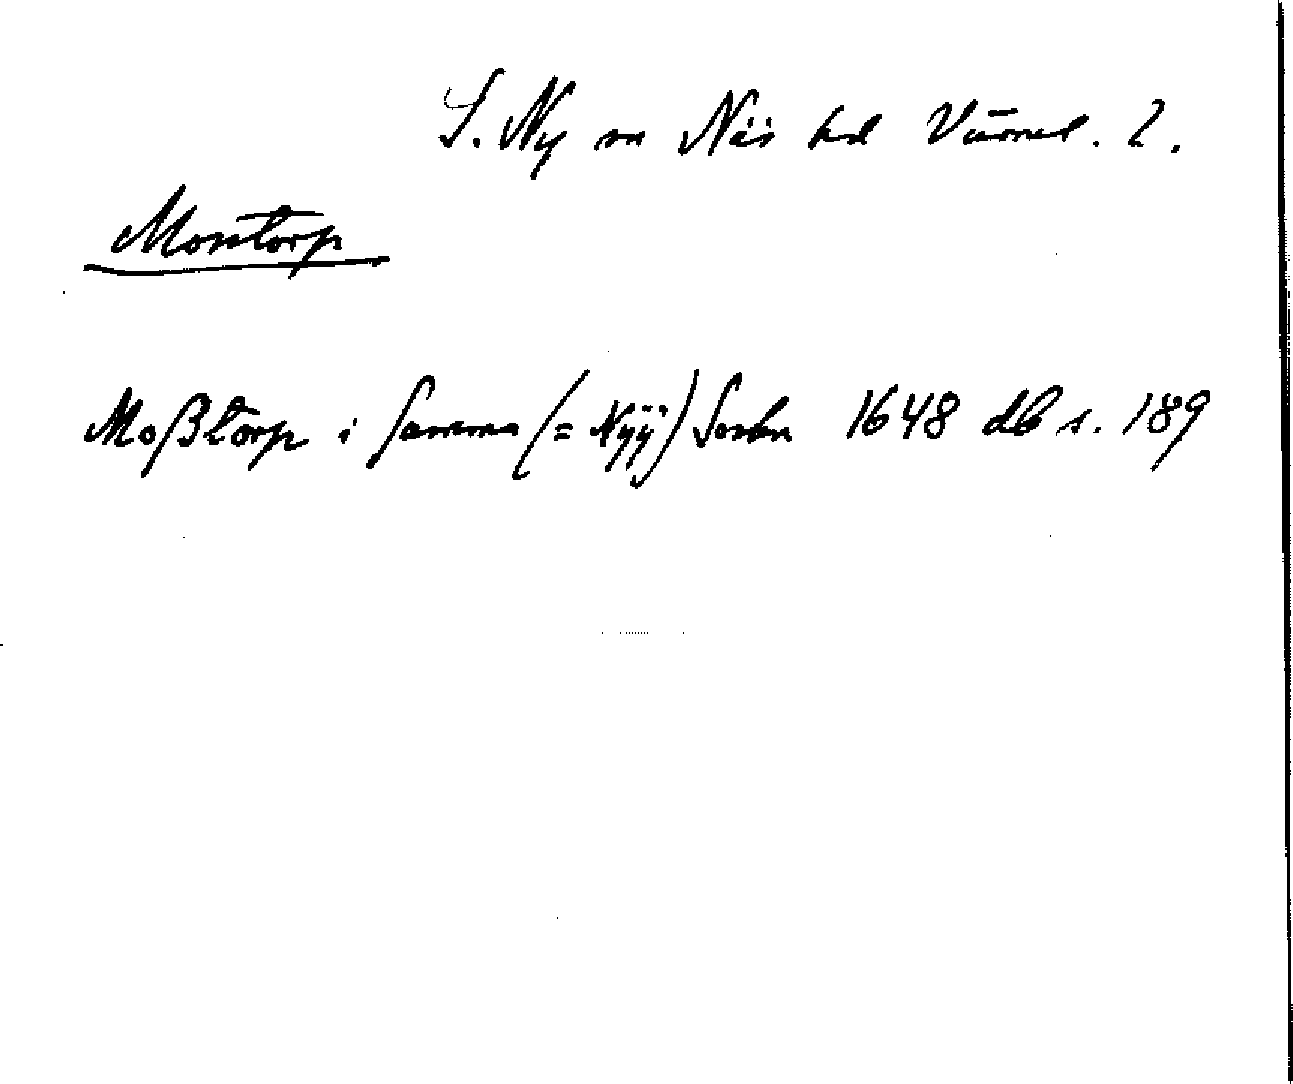 S. Ny sn Näs hd Värml. l.
Mosstorp
Moßtorp i samma (= Nÿÿ) Sochn 1648 db s. 189